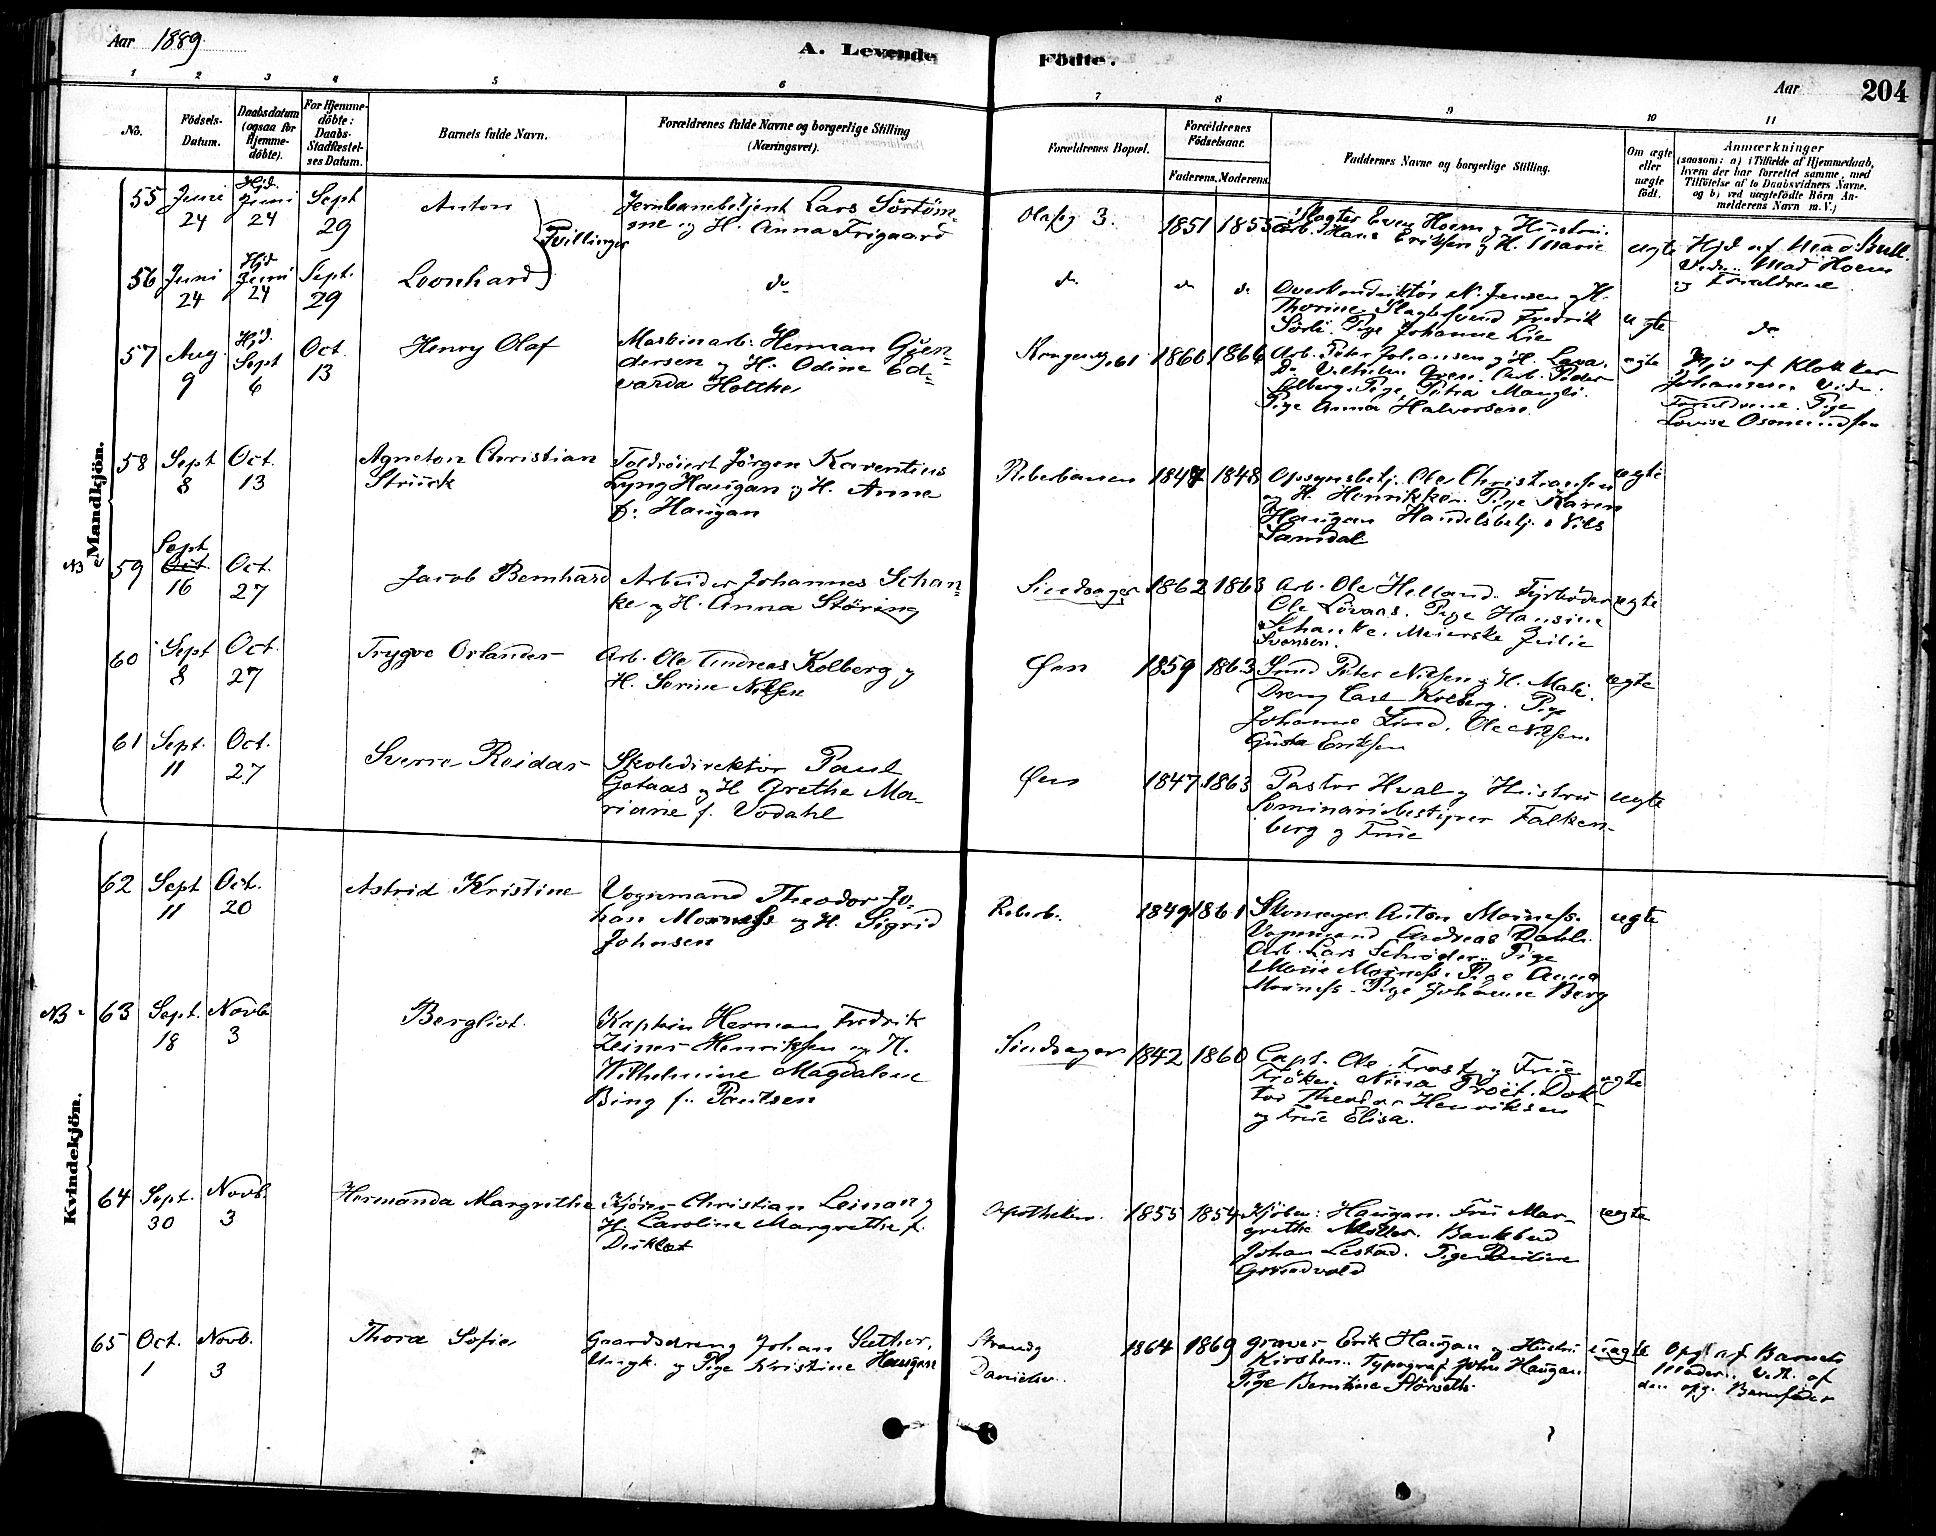 Aar 1889
A. Levende Födte.
Aar 204
1 2 3 4 5 6 7 8 9 10 11
No.
Födsels-Datum.
Daabsdatum (ogsaa for Hjemme-döbte).
For Hjemme-döbte: Daabs-Stadfæstel-ses Datum.
Barnets fulde Navn.
Forældrenes fulde Navne og borgerlige Stilling
(Næringsvei).
Forældrenes Bopæl.
Forældrenes Födselsaar.
Faderens. Moderens.
Faddernes Navne og borgerlige Stilling.
Om ægte eller uægte födt.
Anmærkninger
(saasom: a) i Tilfælde af Hjemmedaab,
hvem der har forrettet samme, med
Tilföielse af to Daabsvidners Navne,
og b) ved uægtefödte Börn An-
melderens Navn m. V.)
Mandkjön.
55 Juni 24 Hjd. Juni 24 Sept 29 Anton
Tvillinger
Jernbanebetjent Lars Sörtöm-
me og H. Anna Frigaard
Olafsg 3. 1851 1855
Slagter Even Hoem og Hustru.
Arb. Hans Eriksen og H. Marie
ægte
Hjd af Mad. Bull.
Vidn: Mad Hoem
og Forældrene
56 Juni 24 Hjd. Juni 24 Sept. 29 Leonhard
do do do do
Overkonduktör N. Jensen og H.
Thorine. Slagtersvend Fredrik
Sörli. Pige Johanne Lie
ægte do
57 Aug. 9 Hjd. Sept 6 Oct. 13 Henry Olaf
Maskinarb. Herman Gjen-
dersen og H. Odine Ed-
varda Holthe
Kongensg. 61 1860 1866
Arb. Peter Johansen og H. Lava.
Do Vilhelm Aven. Arb. Peder
Solberg. Pige Petra Mangli.
Pige Anna Halvorsen.
ægte
Hjd af Klokker
Johansen. Vidn.
Forældrene. Pige
Lovise Osmundsen
58 Sept 8 Oct. 13 Agneton Christian
Struck
Toldröiert Jörgen Kaventius
Lyng Haugan og H. Anne
f. Haugan
Reberbanen 1847 1848
Opsynsbetj. Ole Christiansen
og H. Henrikke. Pige Karen
Haugan Handelsbetj. Nils
Samdal
ægte
NB 59 Sept Oct. 16 Oct. 27 Jacob Bernhard
Arbeider Johannes Schan-
ke og H. Anna Störing
Sindsager 1862 1863
Arb. Ole Helland. Fyrböder
Ole Lövaas. Pige Hansine
Schanke. Meierske Julie
Svensen.
ægte
60 Sept 8 Oct. 27 Trygve Orlander
Arb. Ole Andreas Kolberg og
H. Serine Nilsen
Øen 1859 1863
Smed Peter Nilsen og H. Mali.
Dreng Carl Kolberg. Pige
Johanne Lund. Ole Nilsen.
Gusta Eriksen
ægte
61 Sept. 11 Oct. 27 Sverre Reidar
Skoledirektör Paul
Gotaas og H Grethe Ma-
riane f. Vodahl
Øen 1847 1863
Pastor Hval og Hustru
Seminariebestyrer Falken-
berg og Frue
ægte
Kvindekjön.
62 Sept 11 Oct. 20 Astrid Kristine
Vognmand Theodor Jo-
han Moxness og H. Sigrid
Johnsen
Reberb. 1849 1861
Skomager Anton Moxness.
Vognmand Andreas Dahl.
Arb. Lars Schröder. Pige
Marie Moxness. Pige Anna
Moxness. Pige Johanne Berg
ægte
NB 63 Sept. 18 Novb. 3 Bergliot.
Kaptein Herman Fredrik
Zeiner Henriksen og H.
Wilhelmine Magdalene
Bing f. Paulsen
Sindsager 1842 1860
Capt. Ole Frost og Frue
Fröken Nina Troët. Dok-
tor Theodor Henriksen
og Frue Elisa.
ægte
64 Sept. 30 Novb. 3 Hermanda Margrethe
Christian Leinan og
H. Caroline Margrethe f.
Apotheker. 1855 1854
Kjöbm: Haugan. Fru Mar-
grethe Möller. Bankbud
Johan Lestad. Pige Pauline
Grindvold
ægte
65 Oct. 1 Novb. 3 Thora Sofie
Gaardsdreng Johan Sæther,
Ungk. og Pige Kristine Haugan
Strandg
Danielsv. 1864 1869
Graver Erik Haugan og Hustru
Kirsten. Typograf John Haugan
Pige Berntine Störseth
uægte
Opg. af Barnets
Moder. Vedt. af
den opg. Barnefader